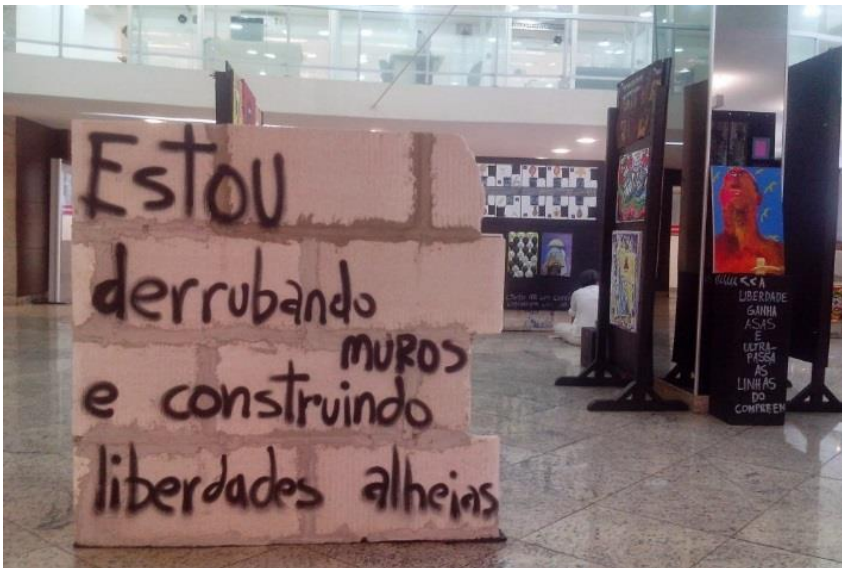 Estou
derrubando
MUROS
e construindo
liberdades alheias
LIBERDADE
GANHA
ASAS
E
ULTRA-
PASSA
AS
LINHAS
DO
COMPREEN